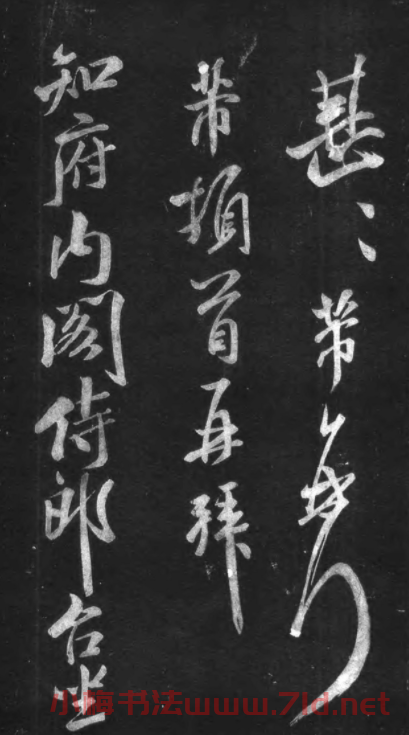 甚〻芾
芾頓首再拜
知府內閣侍郎台坐
小梅书法www.7ld.net